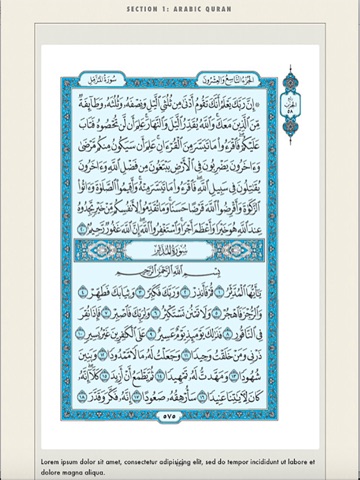 SECTION 1: ARABIC QURAN
سُورَةُ المُزَّمِّل
الجُزْءُ التَّاسِعُ وَالعِشْرُونَ
۞ إِنَّ رَبَّكَ يَعْلَمُ أَنَّكَ تَقُومُ أَدْنَىٰ مِن ثُلُثَيِ ٱلَّيْلِ وَنِصْفَهُۥ وَثُلُثَهُۥ وَطَآئِفَةٌ
مِّنَ ٱلَّذِينَ مَعَكَۚ وَٱللَّهُ يُقَدِّرُ ٱلَّيْلَ وَٱلنَّهَارَۚ عَلِمَ أَن لَّن تُحْصُوهُ فَتَابَ
عَلَيْكُمْۖ فَٱقْرَءُوا۟ مَا تَيَسَّرَ مِنَ ٱلْقُرْءَانِۚ عَلِمَ أَن سَيَكُونُ مِنكُم مَّرْضَىٰ
وَءَاخَرُونَ يَضْرِبُونَ فِى ٱلْأَرْضِ يَبْتَغُونَ مِن فَضْلِ ٱللَّهِۙ وَءَاخَرُونَ
يُقَٰتِلُونَ فِى سَبِيلِ ٱللَّهِۖ فَٱقْرَءُوا۟ مَا تَيَسَّرَ مِنْهُۚ وَأَقِيمُوا۟ ٱلصَّلَوٰةَ وَءَاتُوا۟
ٱلزَّكَوٰةَ وَأَقْرِضُوا۟ ٱللَّهَ قَرْضًا حَسَنًاۚ وَمَا تُقَدِّمُوا۟ لِأَنفُسِكُم مِّنْ خَيْرٍ تَجِدُوهُ
عِندَ ٱللَّهِ هُوَ خَيْرًا وَأَعْظَمَ أَجْرًاۚ وَٱسْتَغْفِرُوا۟ ٱللَّهَۖ إِنَّ ٱللَّهَ غَفُورٌ رَّحِيمٌۢ ٢٠
سُورَةُ المُدَّثِّر
بِسْمِ ٱللَّهِ ٱلرَّحْمَٰنِ ٱلرَّحِيمِ
يَٰٓأَيُّهَا ٱلْمُدَّثِّرُ ١ قُمْ فَأَنذِرْ ٢ وَرَبَّكَ فَكَبِّرْ ٣ وَثِيَابَكَ فَطَهِّرْ ٤
وَٱلرُّجْزَ فَٱهْجُرْ ٥ وَلَا تَمْنُن تَسْتَكْثِرُ ٦ وَلِرَبِّكَ فَٱصْبِرْ ٧ فَإِذَا نُقِرَ
فِى ٱلنَّاقُورِ ٨ فَذَٰلِكَ يَوْمَئِذٍ يَوْمٌ عَسِيرٌ ٩ عَلَى ٱلْكَٰفِرِينَ غَيْرُ يَسِيرٍ ١٠
ذَرْنِى وَمَنْ خَلَقْتُ وَحِيدًا ١١ وَجَعَلْتُ لَهُۥ مَالًا مَّمْدُودًا ١٢ وَبَنِينَ
شُهُودًا ١٣ وَمَهَّدتُّ لَهُۥ تَمْهِيدًا ١٤ ثُمَّ يَطْمَعُ أَنْ أَزِيدَ ١٥ كَلَّآۖ إِنَّهُۥ
كَانَ لِءَايَٰتِنَا عَنِيدًا ١٦ سَأُرْهِقُهُۥ صَعُودًا ١٧ إِنَّهُۥ فَكَّرَ وَقَدَّرَ ١٨
٥٧٥
الحزب
٥٨
Lorem ipsum dolor sit amet, consectetur adipisicing elit, sed do tempor incididunt ut labore et
dolore magna aliqua.